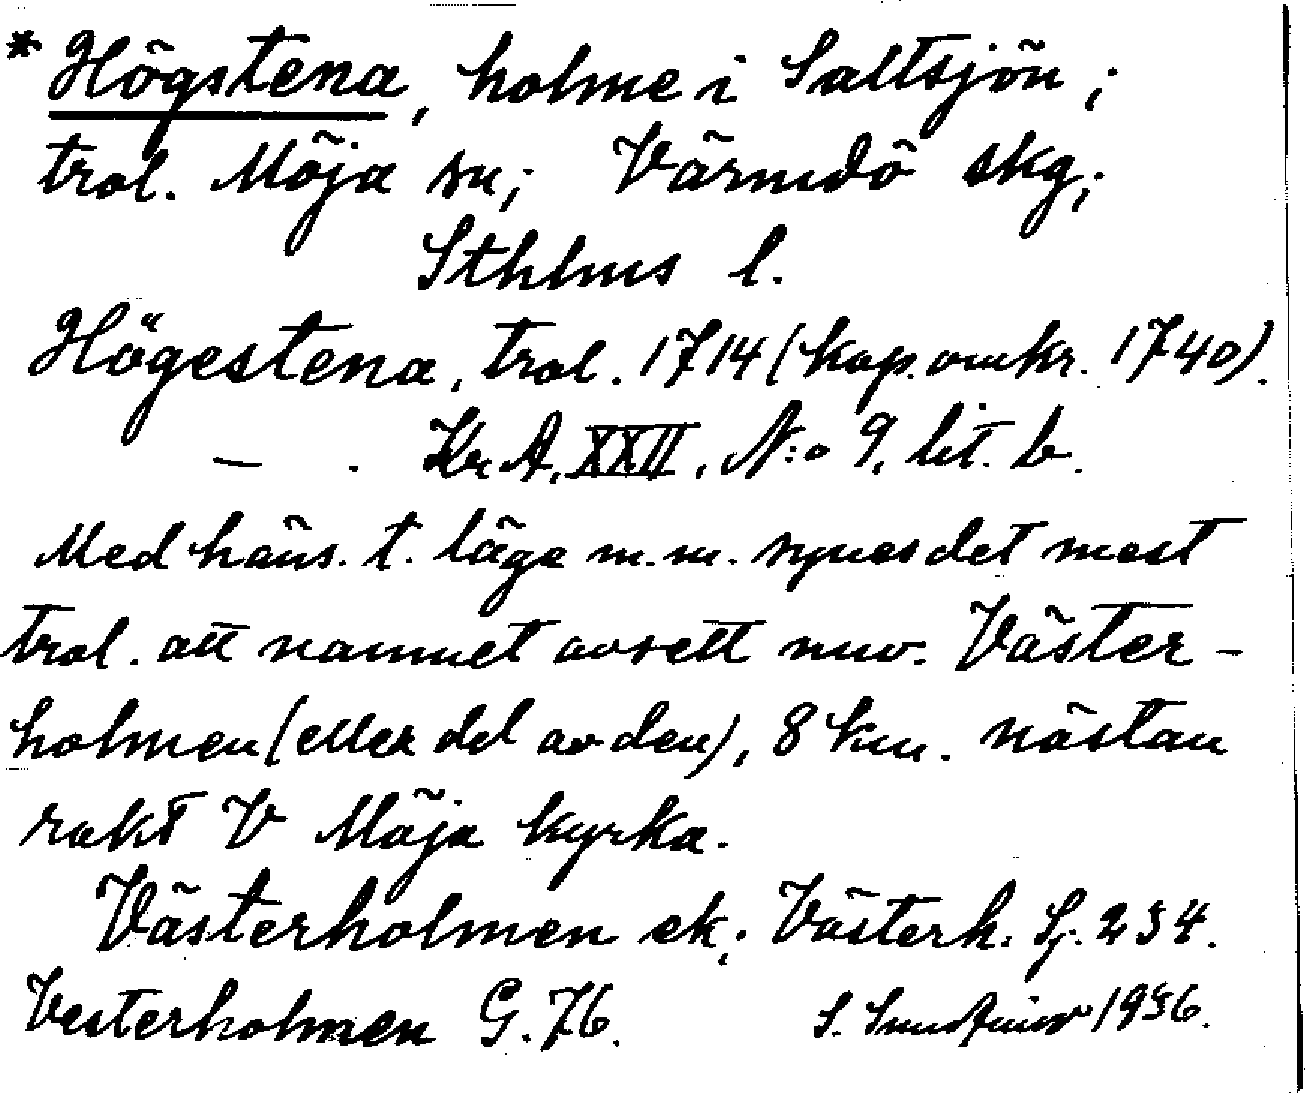 * Högstena, holme i Saltsjön;
trol. Möja sn; Värmdö skg;
Sthlms l.
Högestena, trol. 1714 (kop. omkr. 1740).
— . Kr A, XXII, N:o 9, lit. b.
Med häns. t. läge m.m. synes det mest
trol. att namnet avsett nuv. Väster-
holmen (eller del av den), 8 km. nästan
rakt V Möja kyrka.
Västerholmen ek; Västerh. Sj. 234.
Vesterholmen G. 76. S. 1936.